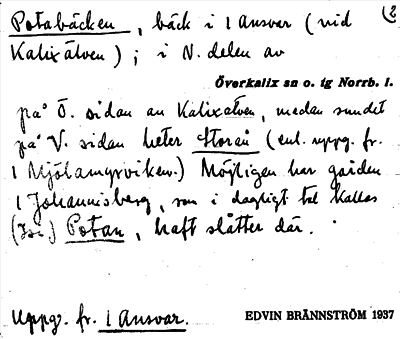 Potabäcken, bäck i 1 Ansvar (vid (2
Kalixälven); i N. delen av
Överkalix sn o. tg Norrb. l.
på Ö. sidan av Kalixälven, medan sundet
på V. sidan heter Storån (enl. uppg. fr.
1 Mjölamyrviken.) Möjligen har gården
1 Johannisberg, som i dagligt tal kallas
Potan, haft slåtter där.
Uppg. fr. 1 Ansvar.
EDVIN BRÄNNSTRÖM 1937